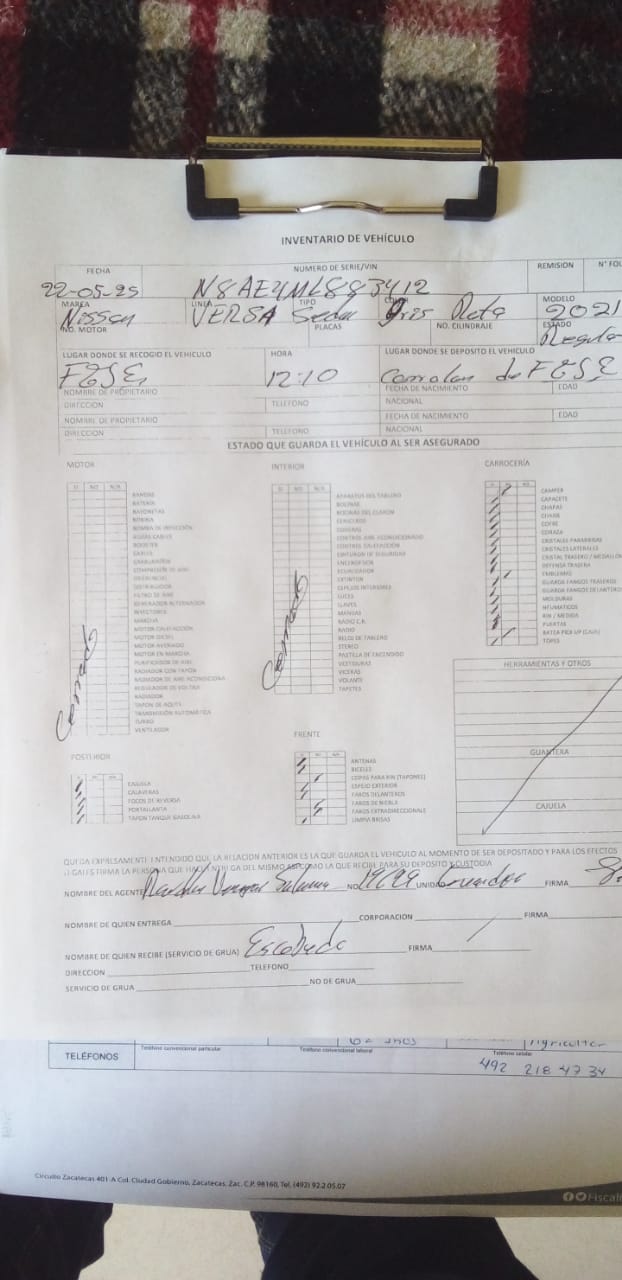 INVENTARIO DE VEHÍCULO
FECHA NUMERO DE SERIE/VIN REMISION N° FOL
22-05-25 N8AE4ML883412
MARCA LINEA TIPO MODELO
Nissan VERSA Sedan Gris Plata 2021
NO. MOTOR PLACAS NO. CILINDRAJE ESTADO
Regular
LUGAR DONDE SE RECOGIO EL VEHICULO HORA LUGAR DONDE SE DEPOSITO EL VEHICULO
FGJE 12:10 Corralon de FGJE
NOMBRE DE PROPIETARIO FECHA DE NACIMIENTO EDAD
DIRECCION TELEFONO NACIONAL
NOMBRE DE PROPIETARIO FECHA DE NACIMIENTO EDAD
DIRECCION TELEFONO NACIONAL
ESTADO QUE GUARDA EL VEHÍCULO AL SER ASEGURADO
MOTOR INTERIOR CARROCERÍA
SI NO N/R
BANDAS
BATERIA
BAYONETAS
BOBINA
BOMBA DE INYECCIÓN
BUJIAS CABLES
BOOSTER
CABLES
CARBURADOR
COMPRESOR DE AIRE
DISTRIBUIDOR
FILTRO DE AIRE
GENERADOR ALTERNADOR
INYECTORES
MARCHA
MOTOR CALEFACCIÓN
MOTOR DIESEL
MOTOR AVERIADO
MOTOR EN MARCHA
PURIFICADOR DE AIRE
RADIADOR CON TAPON
RADIADOR DE AIRE ACONDICIONA
REGULADOR DE VOLTAJE
RADIADOR
TAPON DE ACEITE
TRANSMISIÓN AUTOMÁTICA
TURBO
VENTILADOR
Cerrado
SI NO N/R
APARATOS DEL TABLERO
BOCINAS
BOCINAS DEL CLAXON
CENICEROS
CONTROL AIRE ACONDICIONADO
CONTROL CALEFACCIÓN
CINTURON DE SEGURIDAD
ENCENDEDOR
ECUALIZADOR
EXTINTOR
ESPEJOS INTERIORES
LUCES
LLAVES
MANIJAS
RADIO C.B.
RADIO
RELOJ DE TABLERO
STEREO
PASTILLA DE ENCENDIDO
VESTIDURAS
VICERAS
VOLANTE
TAPETES
Cerrado
CAMPER
CAPACETE
CHAPAS
COFRE
CORAZA
CRISTALES PARABRISAS
CRISTALES LATERALES
CRISTAL TRASERO / MEDALLON
DEFENSA TRASERA
EMBLEMAS
GUARDA FANGOS TRASEROS
GUARDA FANGOS DELANTEROS
MOLDURAS
NEUMATICOS
RIN / MEDIDA
PUERTAS
BATEA PICK UP (CAJA)
TOPES
HERRAMIENTAS Y OTROS
GUANTERA
CAJUELA
POSTERIOR
CAJUELA
CALAVERAS
FOCOS DE REVERSA
PORTALLANTA
TAPON TANQUE GASOLINA
FRENTE
ANTENAS
BICELES
COPAS PARA RIN (TAPONES)
ESPEJO EXTERIOR
FAROS DELANTEROS
FAROS DE NIEBLA
FAROS EXTRADIRECCIONALE
LIMPIA BRISAS
QUEDA EXPRESAMENTE ENTENDIDO QUE LA RELACION ANTERIOR ES LA QUE GUARDA EL VEHÍCULO AL MOMENTO DE SER DEPOSITADO Y PARA LOS EFECTOS
LEGALES FIRMA LA PERSONA QUE HACE ENTREGA DEL MISMO ASI COMO LA QUE RECIBE PARA SU DEPOSITO Y CUSTODIA
NOMBRE DEL AGENTE NO UNIDAD FIRMA
NOMBRE DE QUIEN ENTREGA CORPORACIÓN FIRMA
NOMBRE DE QUIEN RECIBE (SERVICIO DE GRUA) Escobedo FIRMA
DIRECCION TELEFONO
SERVICIO DE GRUA NO DE GRUA
62 años Agricultor
TELÉFONOS Teléfono convencional particular Teléfono convencional laboral Teléfono celular
492 218 47 34
Circuito Zacatecas 401-A Col. Ciudad Gobierno, Zacatecas, Zac. C.P. 98160, Tel. (492) 92.2.05.07